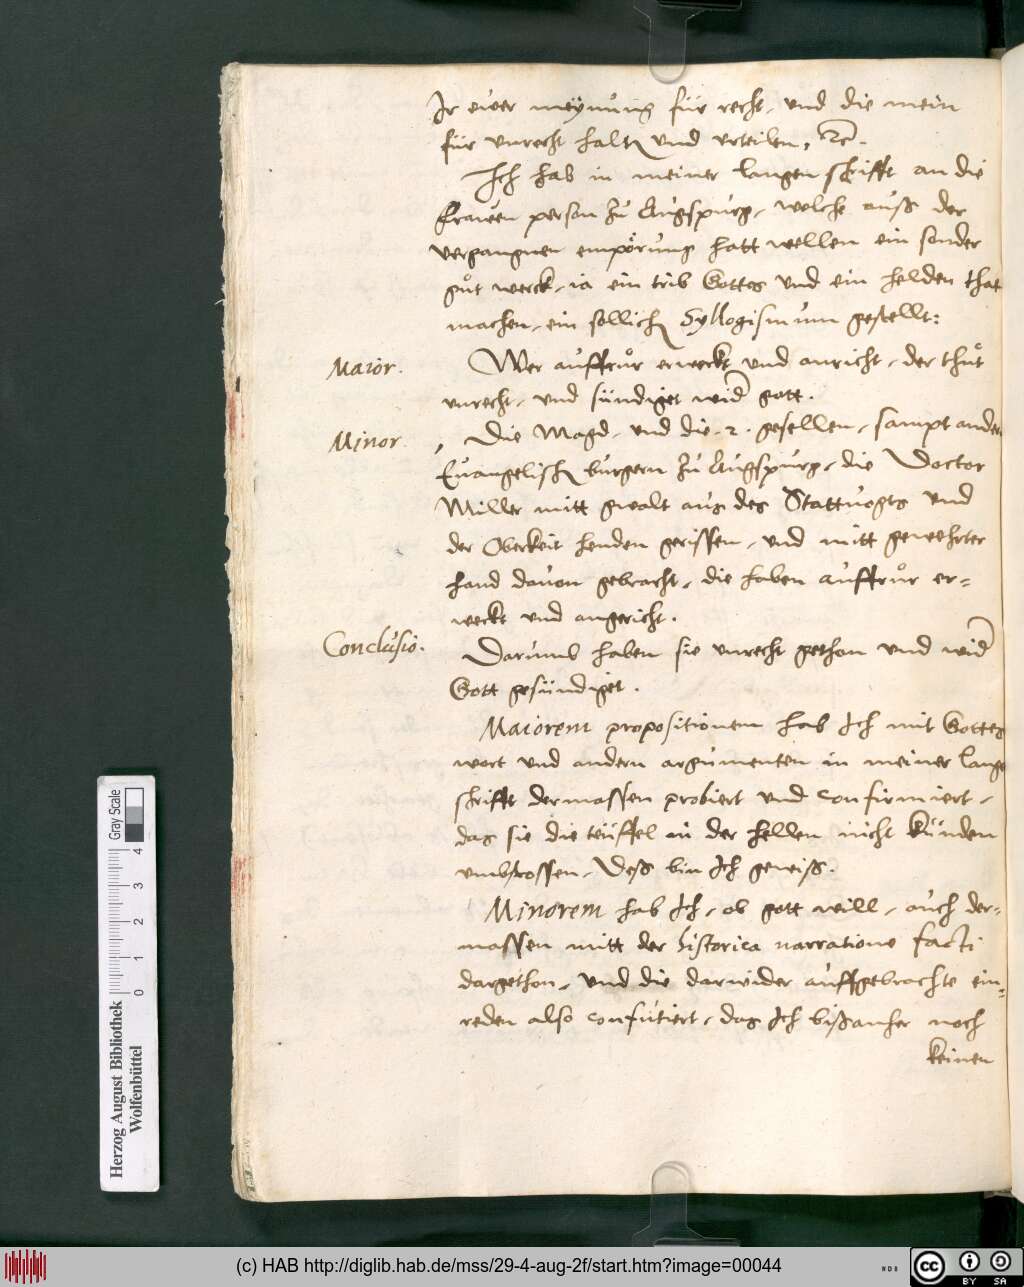 Ir ewer meÿnung für recht, und die mein
für unrecht halten und urteilen, etc.
Ich hab in meiner langen schrifft an die
frauen person zu Augspurg, welche auß der
vergangnen empörung hatt wellen ein sonder
gůt werck, ia ein trib Gottes und ein helden that
machen, ein sollichen Syllogismum gestellt:
Maior. Wer auffrůr erweckt und anricht, der thůt
unrecht, und sündiget wider gott.
Minor. Die Magd, und die .2. gesellen, sampt andern
Euangelischen burgern zu Augspurg, die Doctor
Miller mitt gwalt aus des Stattuogts und
der Oberkeit henden gerissen, und mitt gewehrter
hand dauon gebracht, die haben auffrůr er=
weckt und angericht.
Conclusio. Darumb haben sie unrecht gethon und wider
Gott gesündiget.
Maiorem propositionem hab Ich mit Gottes
wort und andern argumenten in meiner lange
schrifft dermassen probiert und confirmiert,
das sie die teüffel in der hellen nicht künden
umbstossen, Deß bin Ich gewiß.
Minorem hab Ich, ob gott will, auch der=
massen mitt der historica narratione facti
dargethon, und die darwider auffgebrachte ein=
reden also confutiert, das Ich bißanher noch
keinen
Herzog August Bibliothek
Wolfenbüttel
0 1 2 3 4
Gray Scale
(c) HAB http://diglib.hab.de/mss/29-4-aug-2f/start.htm?image=00044
WDB
cc BY SA